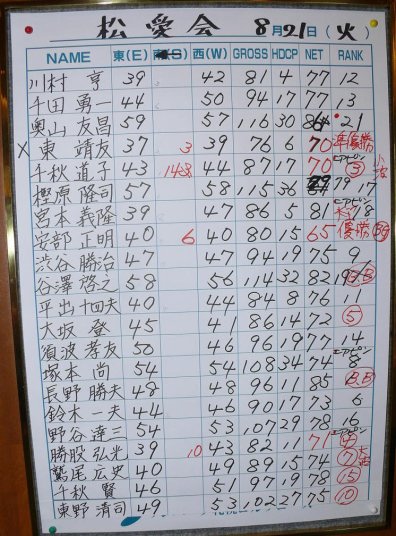 松愛会 8月21日(火)
NAME 東(E) 南(S) 西(W) GROSS HDCP NET RANK
川村 亨 39 42 81 4 77 12
千田 勇一 44 50 94 17 77 13
奥山 友昌 59 57 116 30 86 21
X 東 靖友 37 3 39 76 6 70 準優勝
千秋 道子 43 44 87 17 70 ニアピン ③
樫原 隆司 57 58 115 36 79 17
宮本 義隆 39 47 86 5 81 ニアピン 18
安部 正明 40 6 40 80 15 65 優勝 BG
渋谷 勝治 47 47 94 19 75 9
谷澤 啓之 58 56 114 32 82 19
平出 十四夫 40 44 84 8 76 11
大坂 登 45 41 86 14 72 ⑤
濱波 孝友 50 46 96 19 77 14
塚本 尚 54 54 108 34 74 ニアピン 8
長野 勝夫 48 48 96 11 85 B.B
鈴木 一夫 44 46 90 17 73 6
野谷 達三 54 53 107 29 78 16
勝股 弘光 39 10 43 82 11 71 ニアピン ④
鷲尾 宏史 40 49 89 15 74 ⑦
千秋 賢 46 51 97 19 78 ⑮
東野 清司 49 53 102 27 75 ⑩